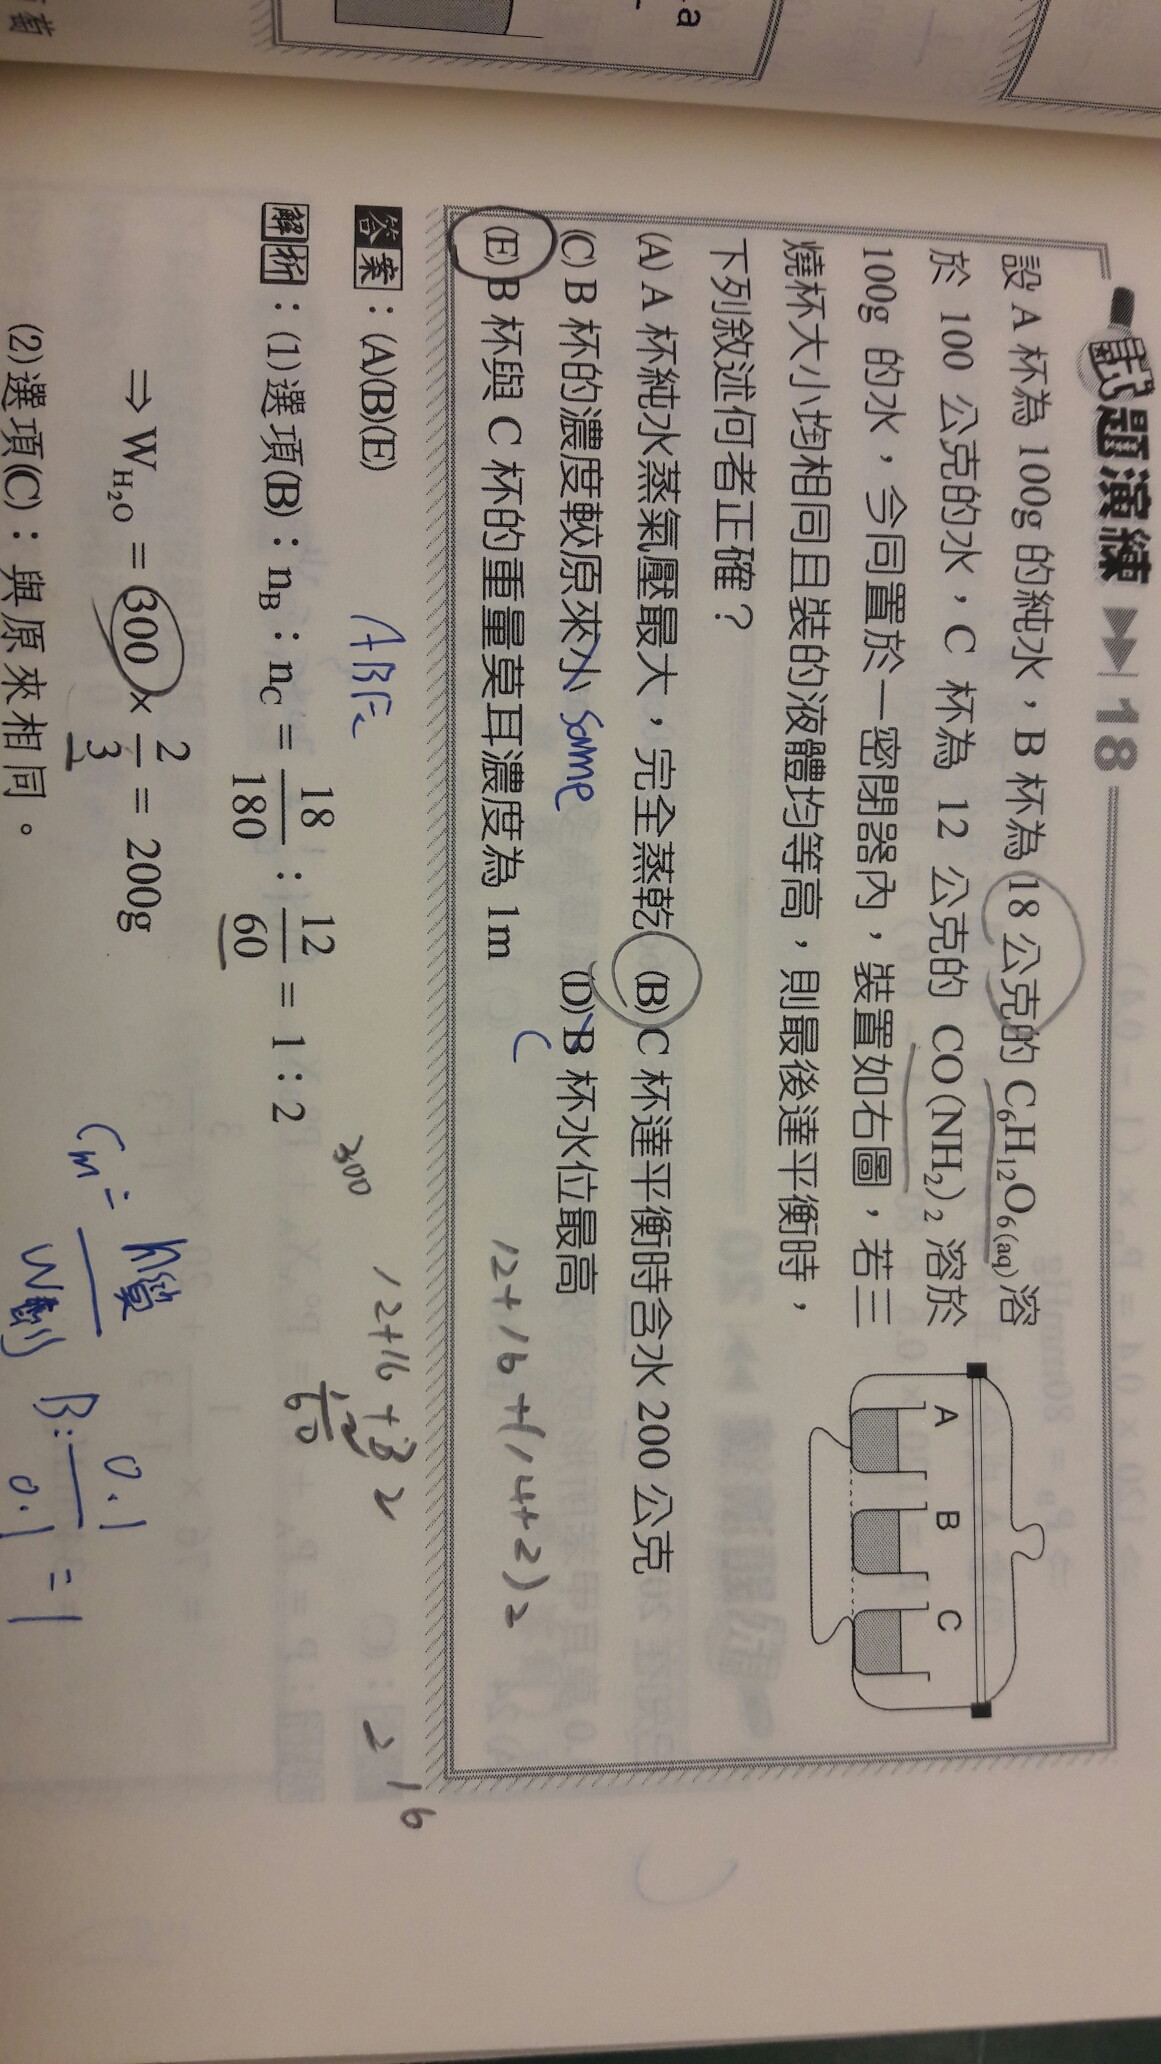 試題演練 ▶▶| 18
設 A 杯為 100g 的純水，B 杯為 18 公克的 C₆H₁₂O₆(aq) 溶
於 100 公克的水，C 杯為 12 公克的 CO(NH₂)₂ 溶於
100g 的水，今同置於一密閉器內，裝置如右圖，若三
燒杯大小均相同且裝的液體均等高，則最後達平衡時，
下列敘述何者正確？
A B C
(A) A 杯純水蒸氣壓最大，完全蒸乾 (B) C 杯達平衡時含水 200 公克
(C) B 杯的濃度較原來小 same (D) B 杯水位最高
C
(E) B 杯與 C 杯的重量莫耳濃度為 1m
12+16+(14+2)2
答案：(A)(B)(E)
ABE
300
12+16+
60
2 16
解析：(1)選項(B)：n_B：n_C = 18/180：12/60 = 1：2
⇒ W_H₂O = 300 × 2/3 = 200g
(2)選項(C)：與原來相同。
Cm = n質/W劑
B: 0.1/0.1 = 1
a